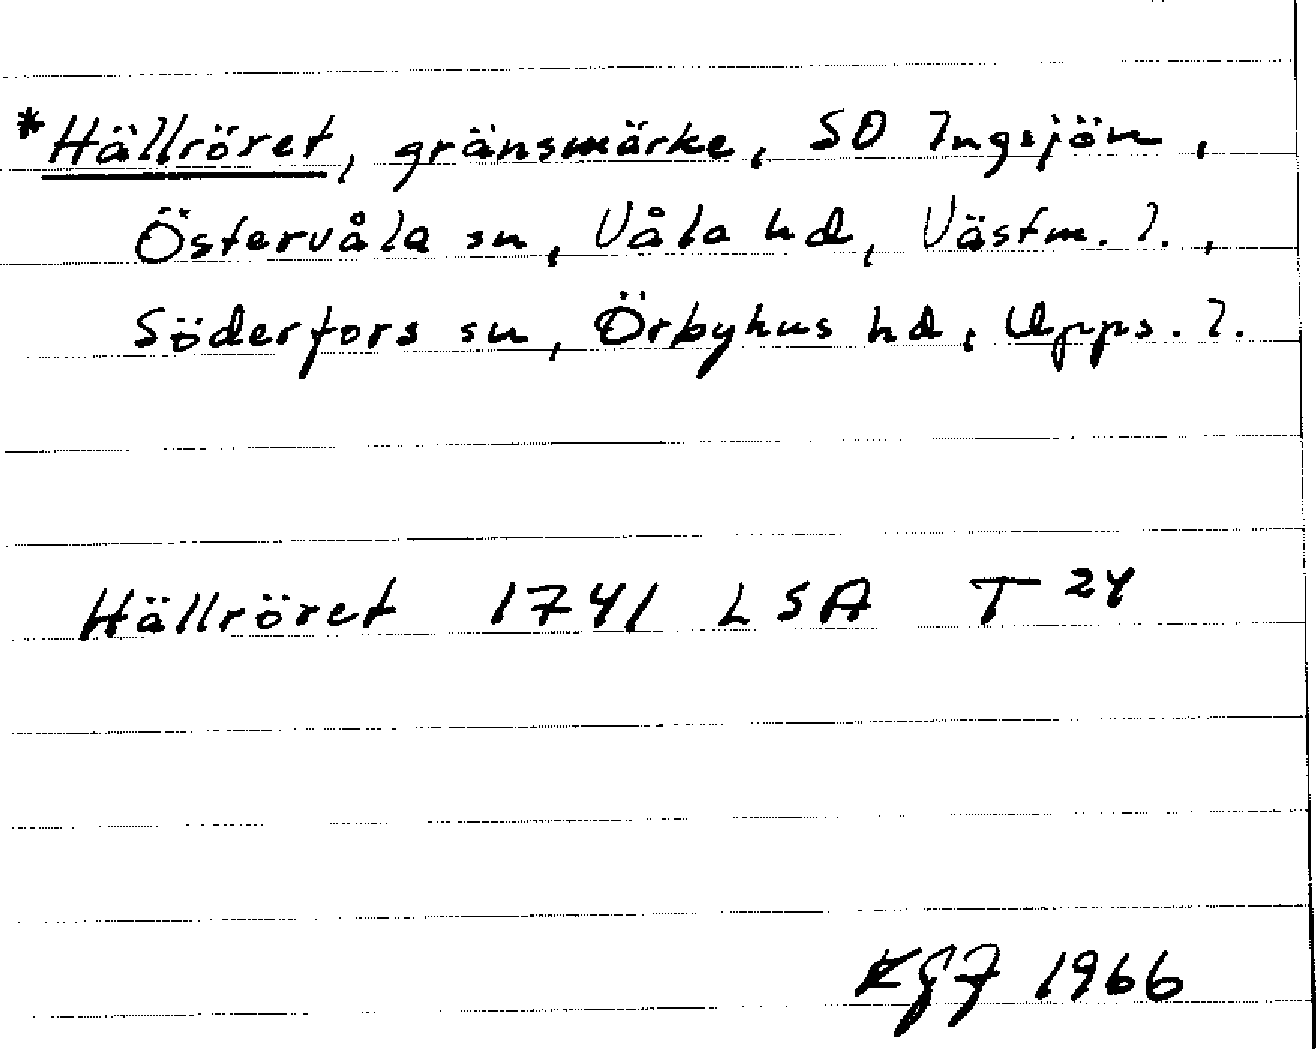 *Hällröret, gränsmärke, SO Ingsjön,
Östervåla sn, Våla hd, Västm. l.,
Söderfors sn, Örbyhus hd, Upps. l.
Hällröret 1741 LSA T 24
KGF 1966